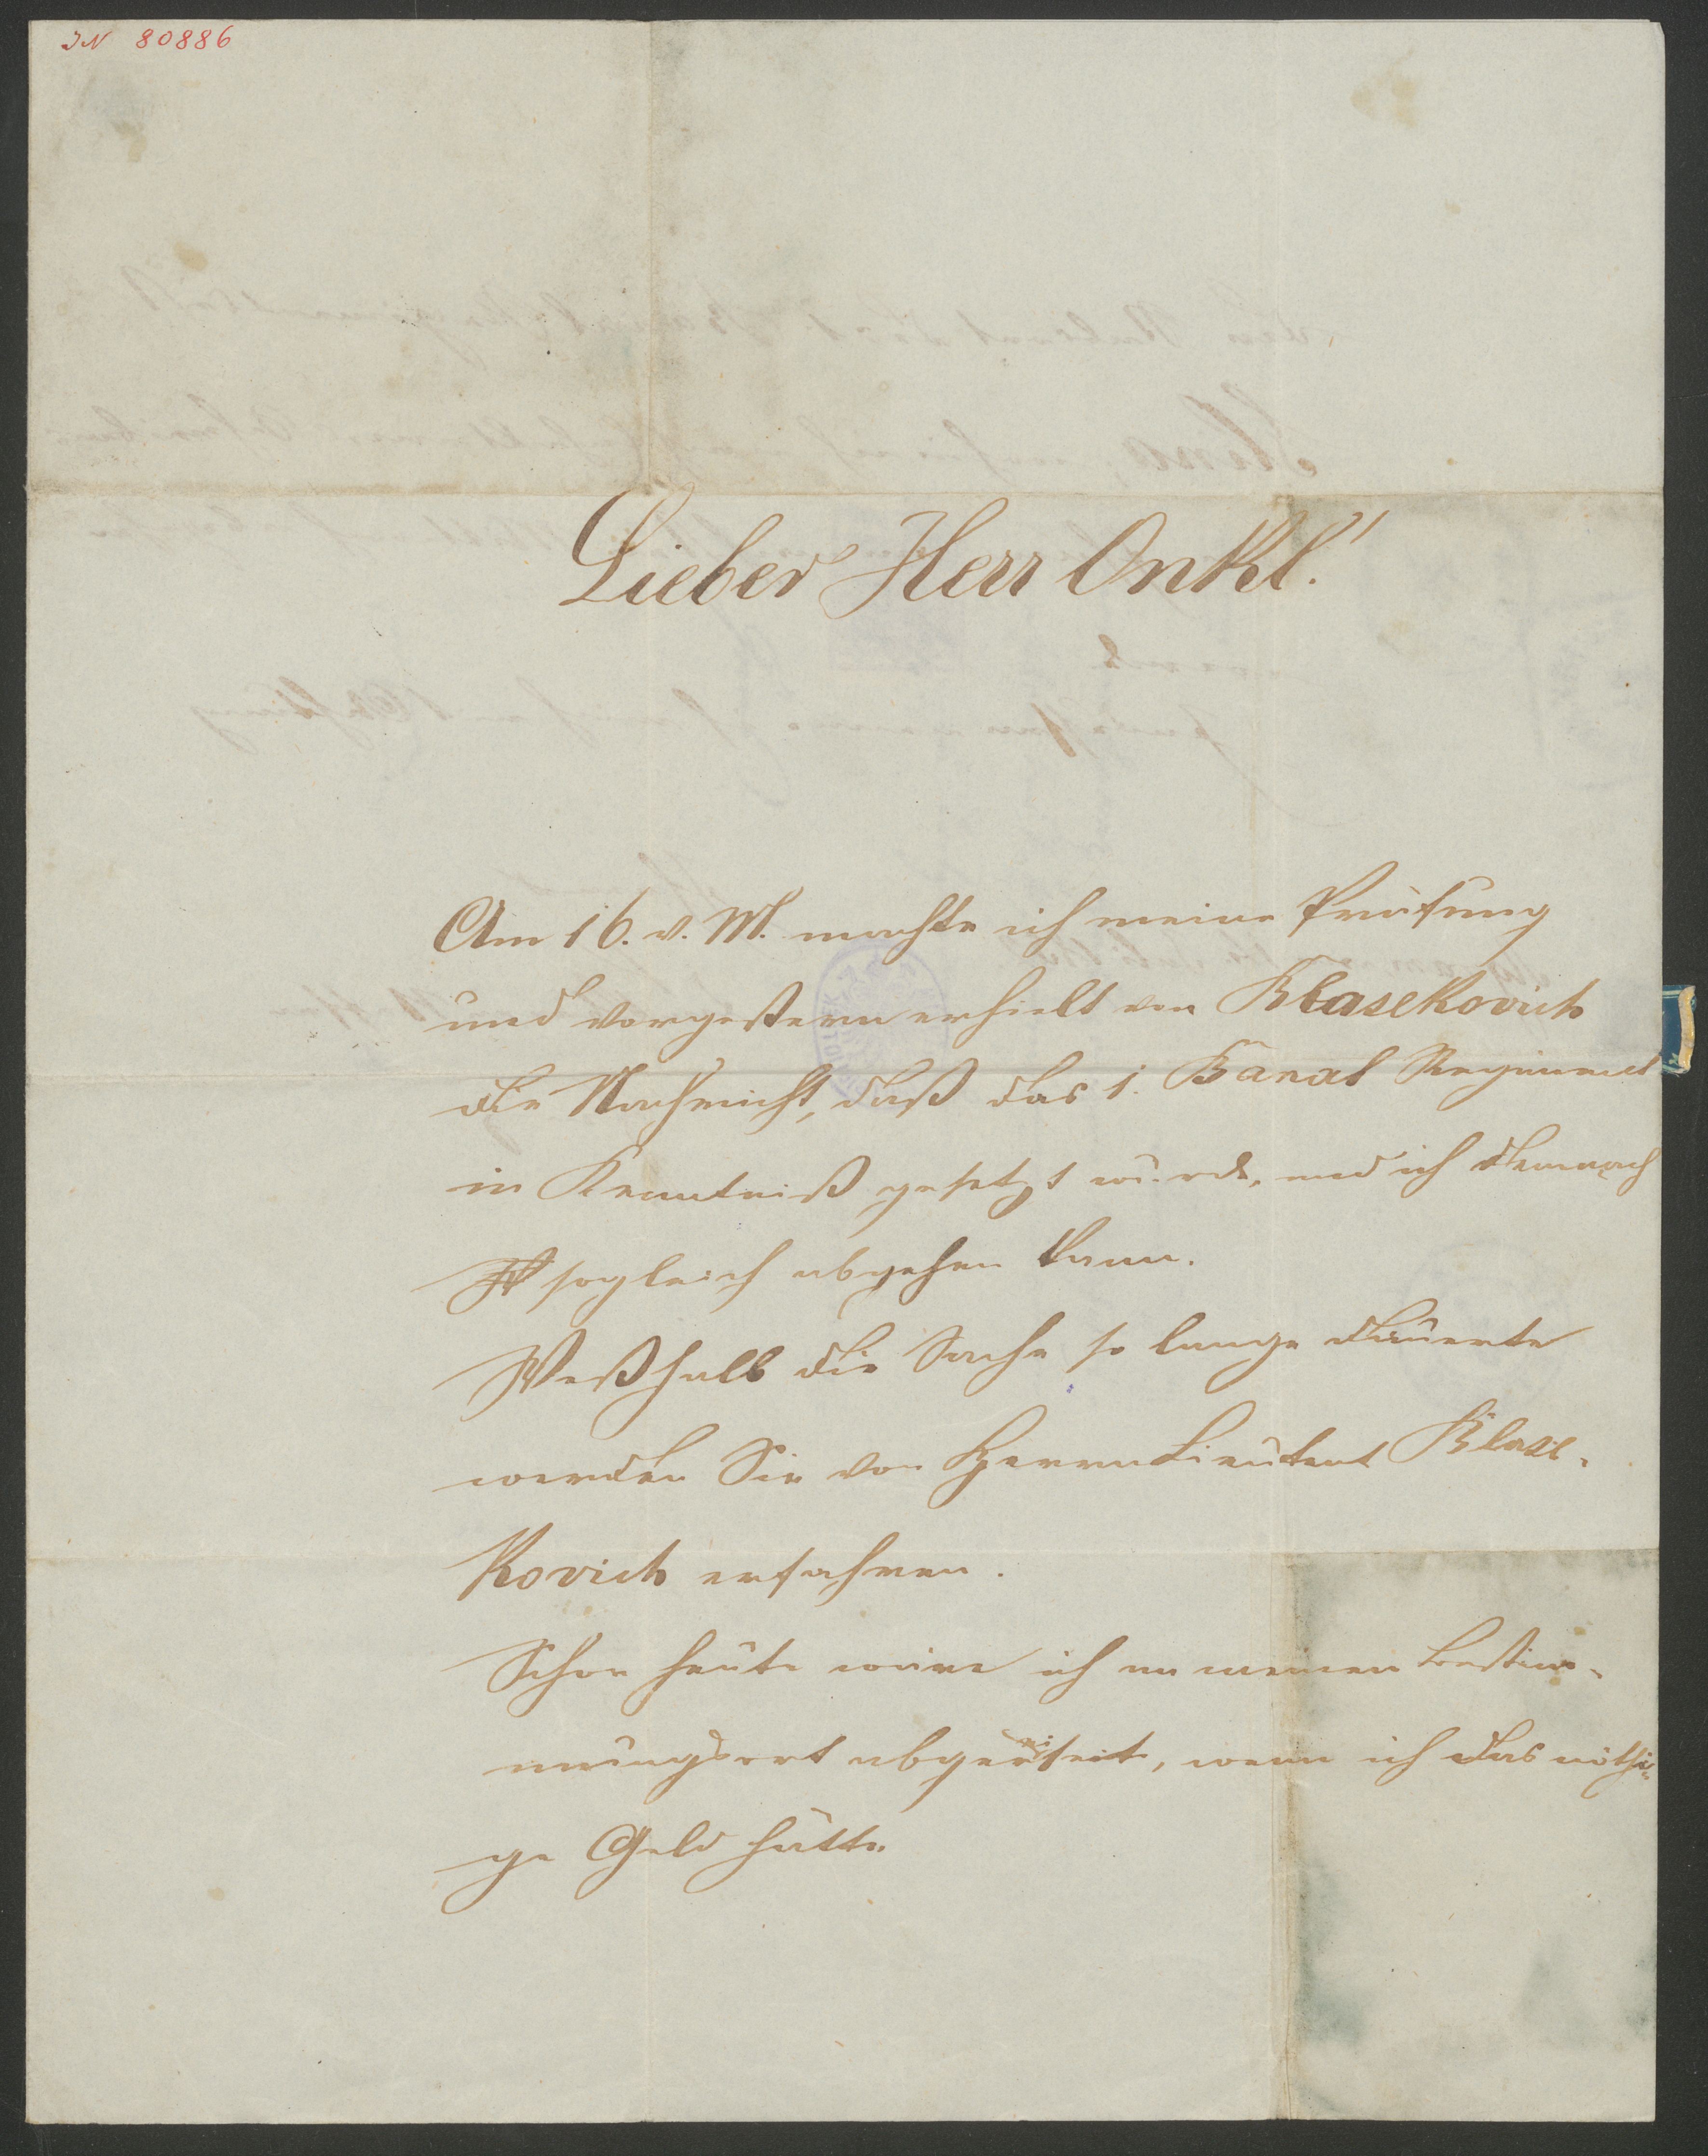 IN 80886
Lieber Herr Onkl!
Am 16. v. M. machte ich meine Prüfung
und vorgestern erhielt von Blasekovich
die Nachricht, daß das 1. Banal Regiment
in Kenntniß gesetzt wurde, und ich demnach
sogleich abgehen kann.
Weßhalb die Sache so lange dauerte
werden Sie von Herrn Lieutent Blase-
kovich erfahren.
Schon heute wäre ich an meinen Bestim-
mungsort abgereiset, wenn ich das nöthi-
ge Geld hätte.